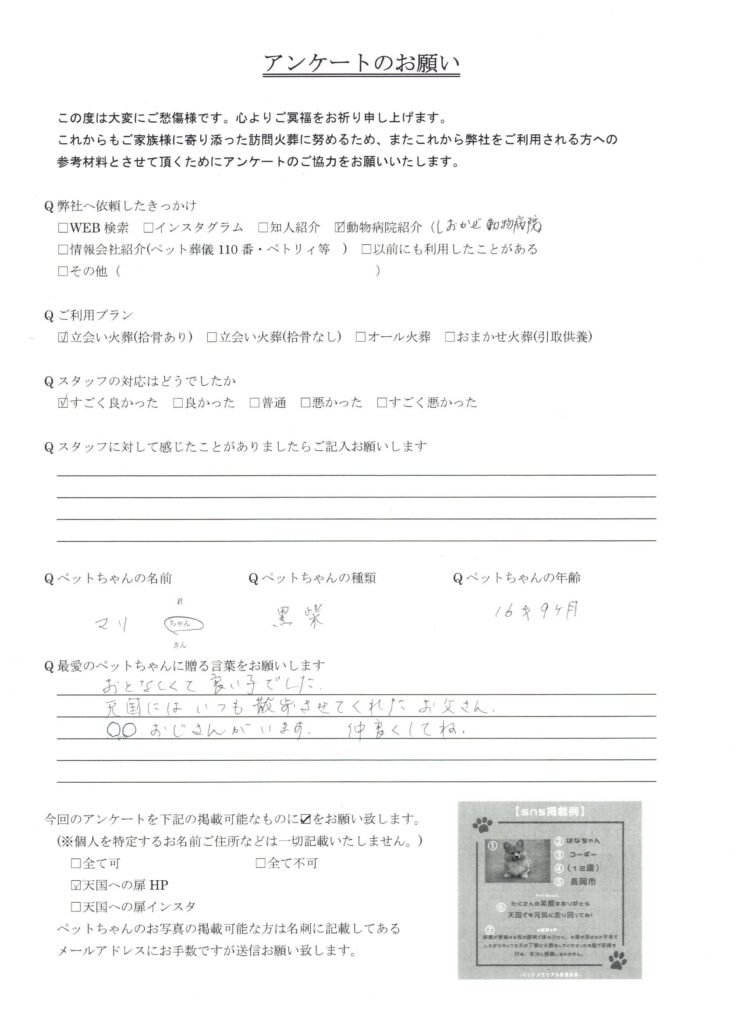 アンケートのお願い
この度は大変にご愁傷様です。心よりご冥福をお祈り申し上げます。
これからもご家族様に寄り添った訪問火葬に努めるため、またこれから弊社をご利用される方への
参考材料とさせて頂くためにアンケートのご協力をお願いいたします。
Q 弊社へ依頼したきっかけ
□WEB 検索 □インスタグラム □知人紹介 ☑動物病院紹介（しおかぜ動物病院）
□情報会社紹介(ペット葬儀 110 番・ペトリィ等 ） □以前にも利用したことがある
□その他（ ）
Q ご利用プラン
☑立会い火葬(拾骨あり) □立会い火葬(拾骨なし) □オール火葬 □おまかせ火葬(引取供養)
Q スタッフの対応はどうでしたか
☑すごく良かった □良かった □普通 □悪かった □すごく悪かった
Q スタッフに対して感じたことがありましたらご記入お願いします
Q ペットちゃんの名前 Q ペットちゃんの種類 Q ペットちゃんの年齢
君
マリ ちゃん 黒柴 16才9ヶ月
さん
Q 最愛のペットちゃんに贈る言葉をお願いします
おとなしくて良い子でした.
天国にはいつも散歩させてくれたお父さん.
○○おじさんがいます. 仲良くしてね.
今回のアンケートを下記の掲載可能なものに☑をお願い致します。
(※個人を特定するお名前ご住所などは一切記載いたしません。)
□全て可 □全て不可
☑天国への扉 HP
□天国への扉インスタ
ペットちゃんのお写真の掲載可能な方は名刺に記載してある
メールアドレスにお手数ですが送信お願い致します。
【sns掲載例】
① ② はなちゃん
③ コーギー
④ (12歳)
⑤ 長岡市
⑥ たくさんの笑顔をありがとう
天国でも元気に走り回ってね!
⑦